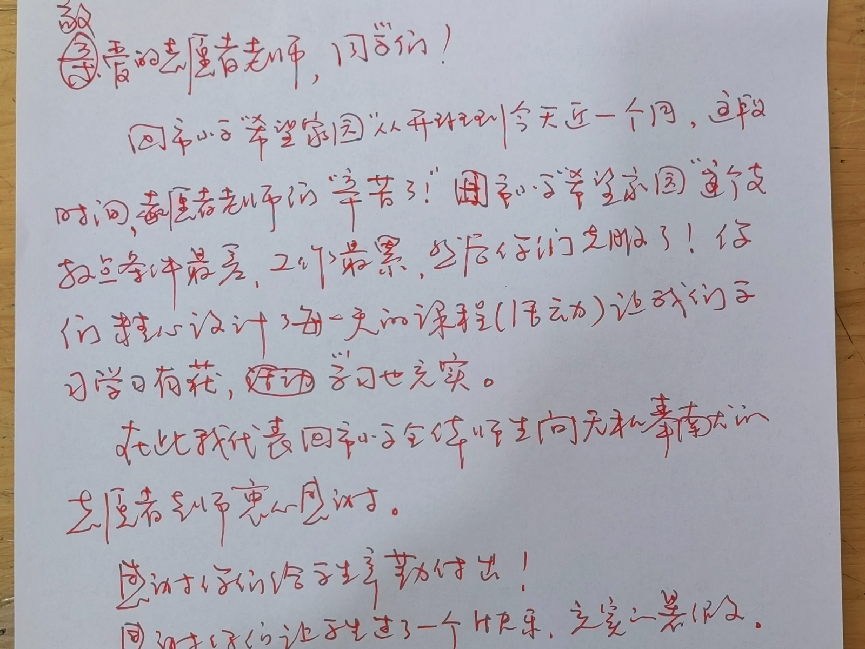 敬
爱的志愿者老师，同学们！
回市小学“希望家园”从开班到今天近一个月，这段
时间，志愿者老师们“辛苦了！”回市小学“希望家园”这个支
教点条件最差，工作最累，然后你们克服了！你
们精心设计了每一天的课程（活动）让我们学
习学习有获，学习也充实。
在此我代表回市小学全体师生向无私奉南大的
志愿者老师衷心感谢。
感谢你们给学生辛勤付出！
感谢你们让学生过了一个快乐、充实的暑假。